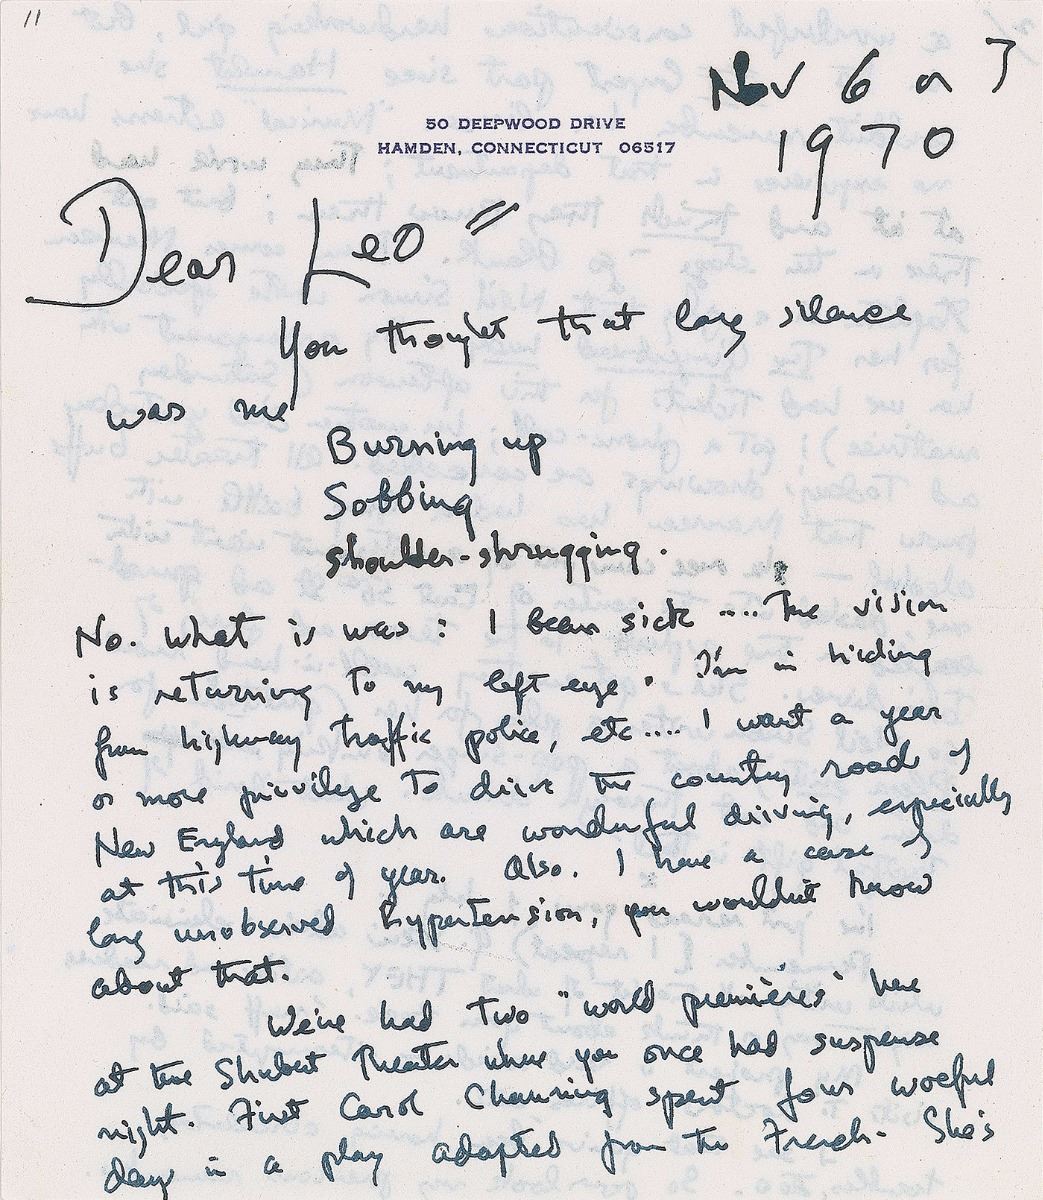 11
Nov 6 or 7
1970
50 DEEPWOOD DRIVE
HAMDEN, CONNECTICUT 06517
Dear Leo =
You thought that long silence
was me
Burning up
Sobbing
shoulder-shrugging.
No. What is was: I been sick .... The vision
is returning to my left eye. I'm in hiding
from highway traffic police, etc..... I want a year
or more privilege to drive the country roads of
New England which are wonderful driving, especially
at this time of year. Also. I have a case of
long unobserved hypertension, you wouldn't know
about that.
We've had two "world premières" here
at the Shubert Theater where you once had suspense
night. First Carol Channing spent four woeful
days in a play adapted from the French. She's